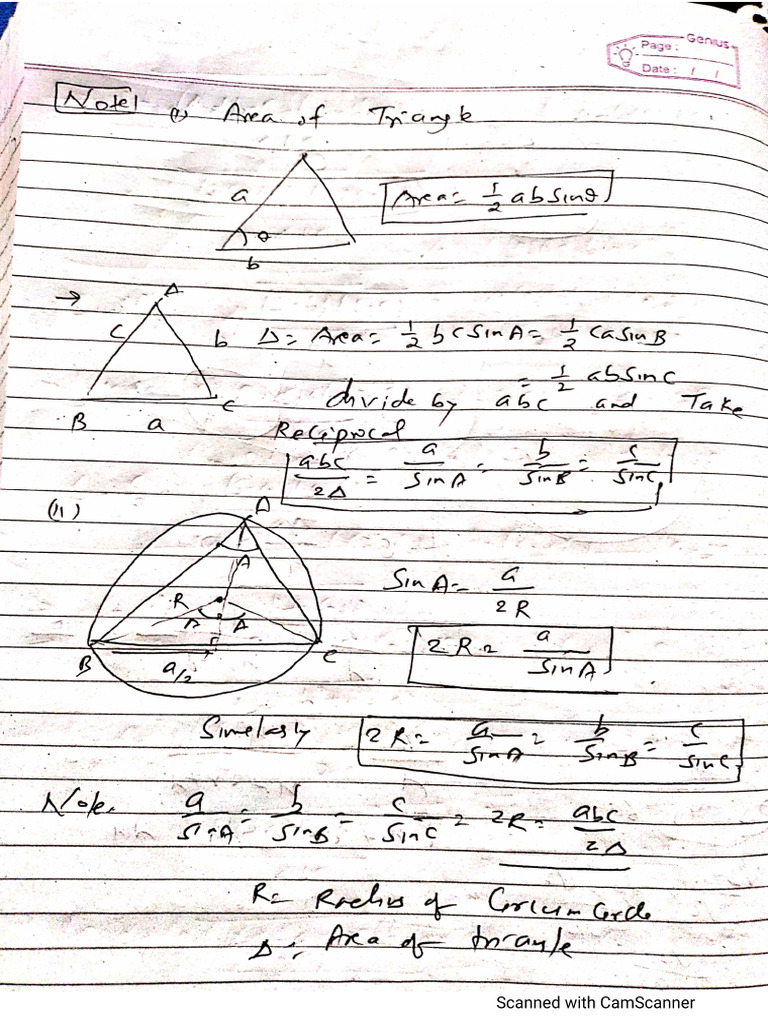 Genius
Page :
Date : / /
Note! (i) Area of Triangle
a
θ
b
Area = 1/2 ab sinθ
→ A
c b
B a C
Δ = Area = 1/2 bc sinA = 1/2 ca sinB
= 1/2 ab sinC
divide by abc and Take
Reciprocal
abc/2Δ = a/sinA = b/sinB = c/sinC
(ii) A
A
R
A A
B C
a/2
sinA = a/2R
2R = a/sinA
Simelarly 2R = a/sinA = b/sinB = c/sinC
Note. a/sinA = b/sinB = c/sinC = 2R = abc/2Δ
R = Radius of Circum Circle
Δ = Area of triangle
Scanned with CamScanner